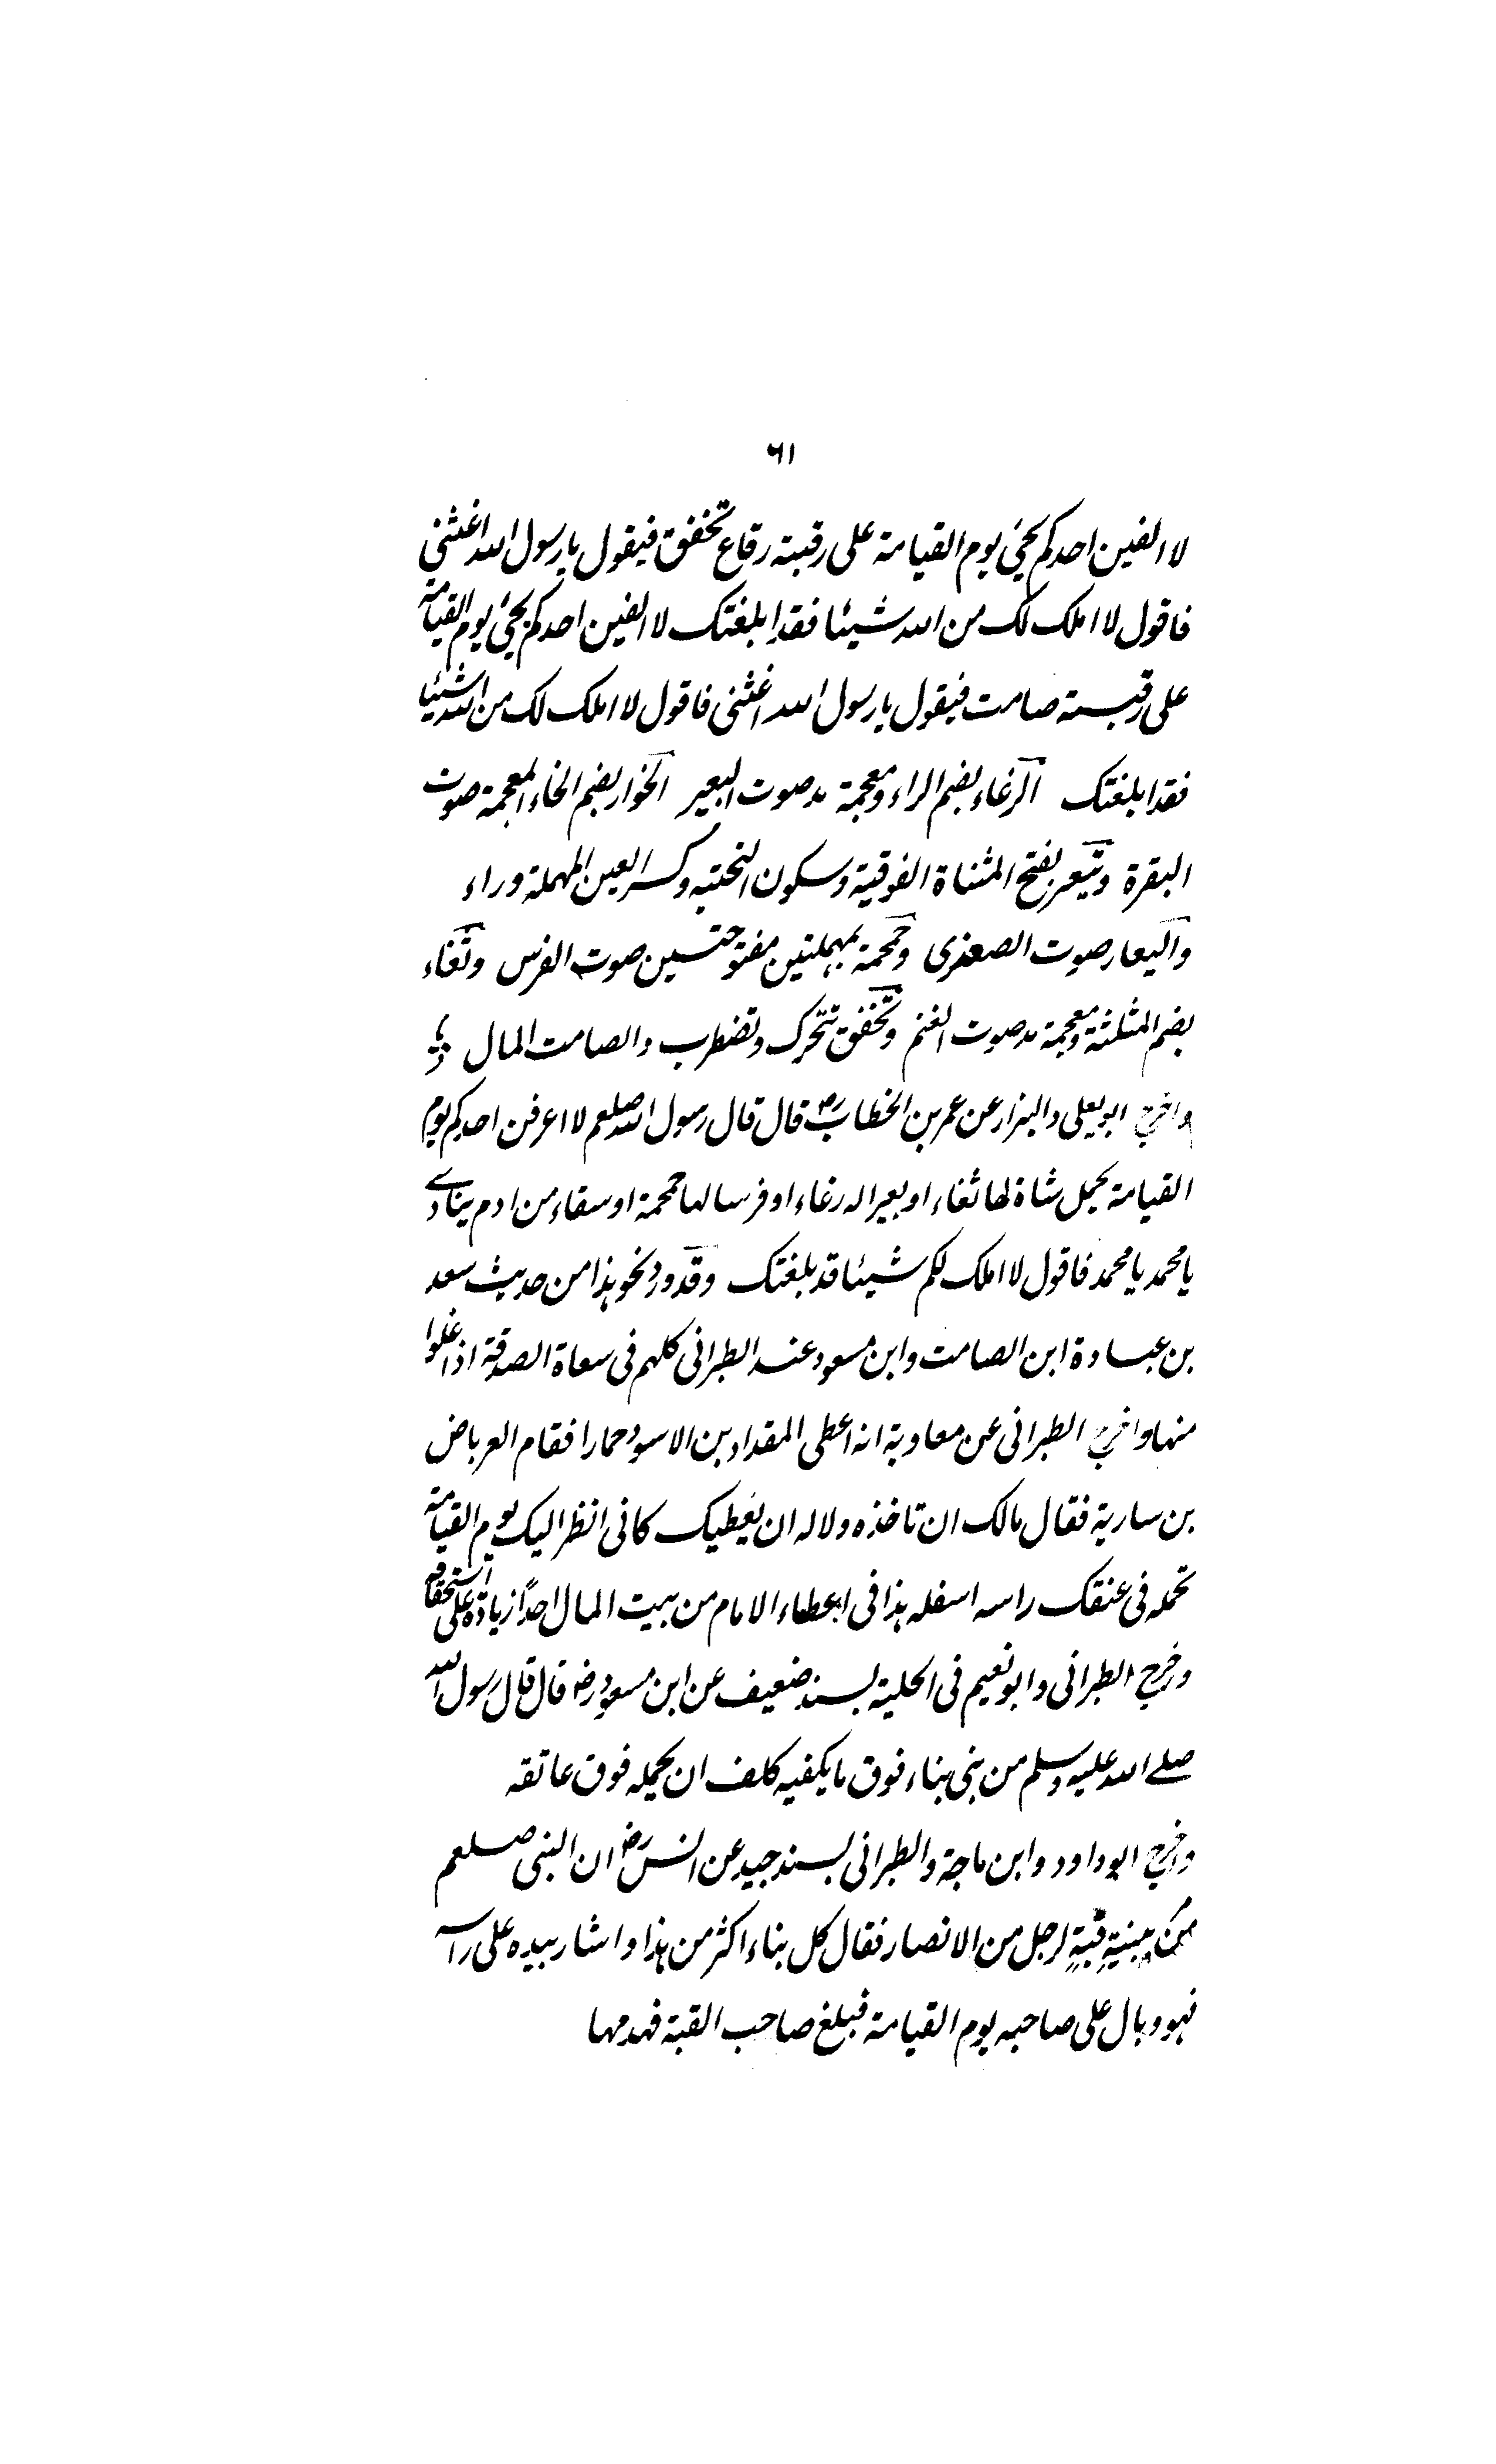 ٦١
لا الفين احدكم يجئ يوم القيامة على رقبته رقاع تخفق فيقول يا رسول الله اغثني
فاقول لا املك لك من الله شيئا فقد ابلغتك لا الفين احدكم يجئ يوم القيامة
على رقبته صامت فيقول يا رسول الله اغثني فاقول لا املك لك من الله شيئا
فقد ابلغتك الرغاء بضم الراء ومعجمة مد صوت البعير الخوار بضم الخاء المعجمة صوت
البقرة وتيعر بفتح المثناة الفوقية وسكون التحتية وكسر العين المهملة وراء
واليعار صوت المعز وحمحمة بمهملتين مفتوحتين صوت الفرس وثغاء
بضم المثلثة ومعجمة مد صوت الغنم وتخفق تتحرك وتضطرب والصامت المال
واخرج ابو يعلى والبزار عن عمر بن الخطاب رض قال قال رسول الله صلعم لا اعرفن احدكم يوم
القيامة يحمل شاة لها ثغاء او بعيرا له رغاء او فرسا لها حمحمة او سقاء من ادم ينادے
يا محمد يا محمد فاقول لا املك لكم شيئا قد بلغتك وقد ورد نحو هذا من حديث سعد
بن عبادة ابن الصامت وابن مسعود عند الطبرانى كلهم فى سعاة الصدقة اذا غلوا
منها واخرج الطبرانى عن معاوية انه اعطى المقداد بن الاسود حمارا فقام العرباض
بن سارية فقال مالك ان تاخذه ولا له ان يعطيك كانى انظر اليك يوم القيامة
تحمله فى عنقك راسه اسفله هذا فى اعطاء الامام من بيت المال احدًا زيادة على استحقاقه
وخرج الطبرانى وابو نعيم فى الحلية بسند ضعيف عن ابن مسعود رض قال قال رسول الله
صلے الله عليه وسلم من بنى بناء فوق ما يكفيه كلف ان يحمله فوق عاتقه
واخرج ابو داود وابن ماجة والطبرانى بسند جيد عن انس رض ان النبى صلعم
مر ببنية قبة لرجل من الانصار فقال كل بناء اكثر من هذا واشار بيده على راسه
فهو وبال على صاحبه يوم القيامة فبلغ صاحب القبة فهدمها